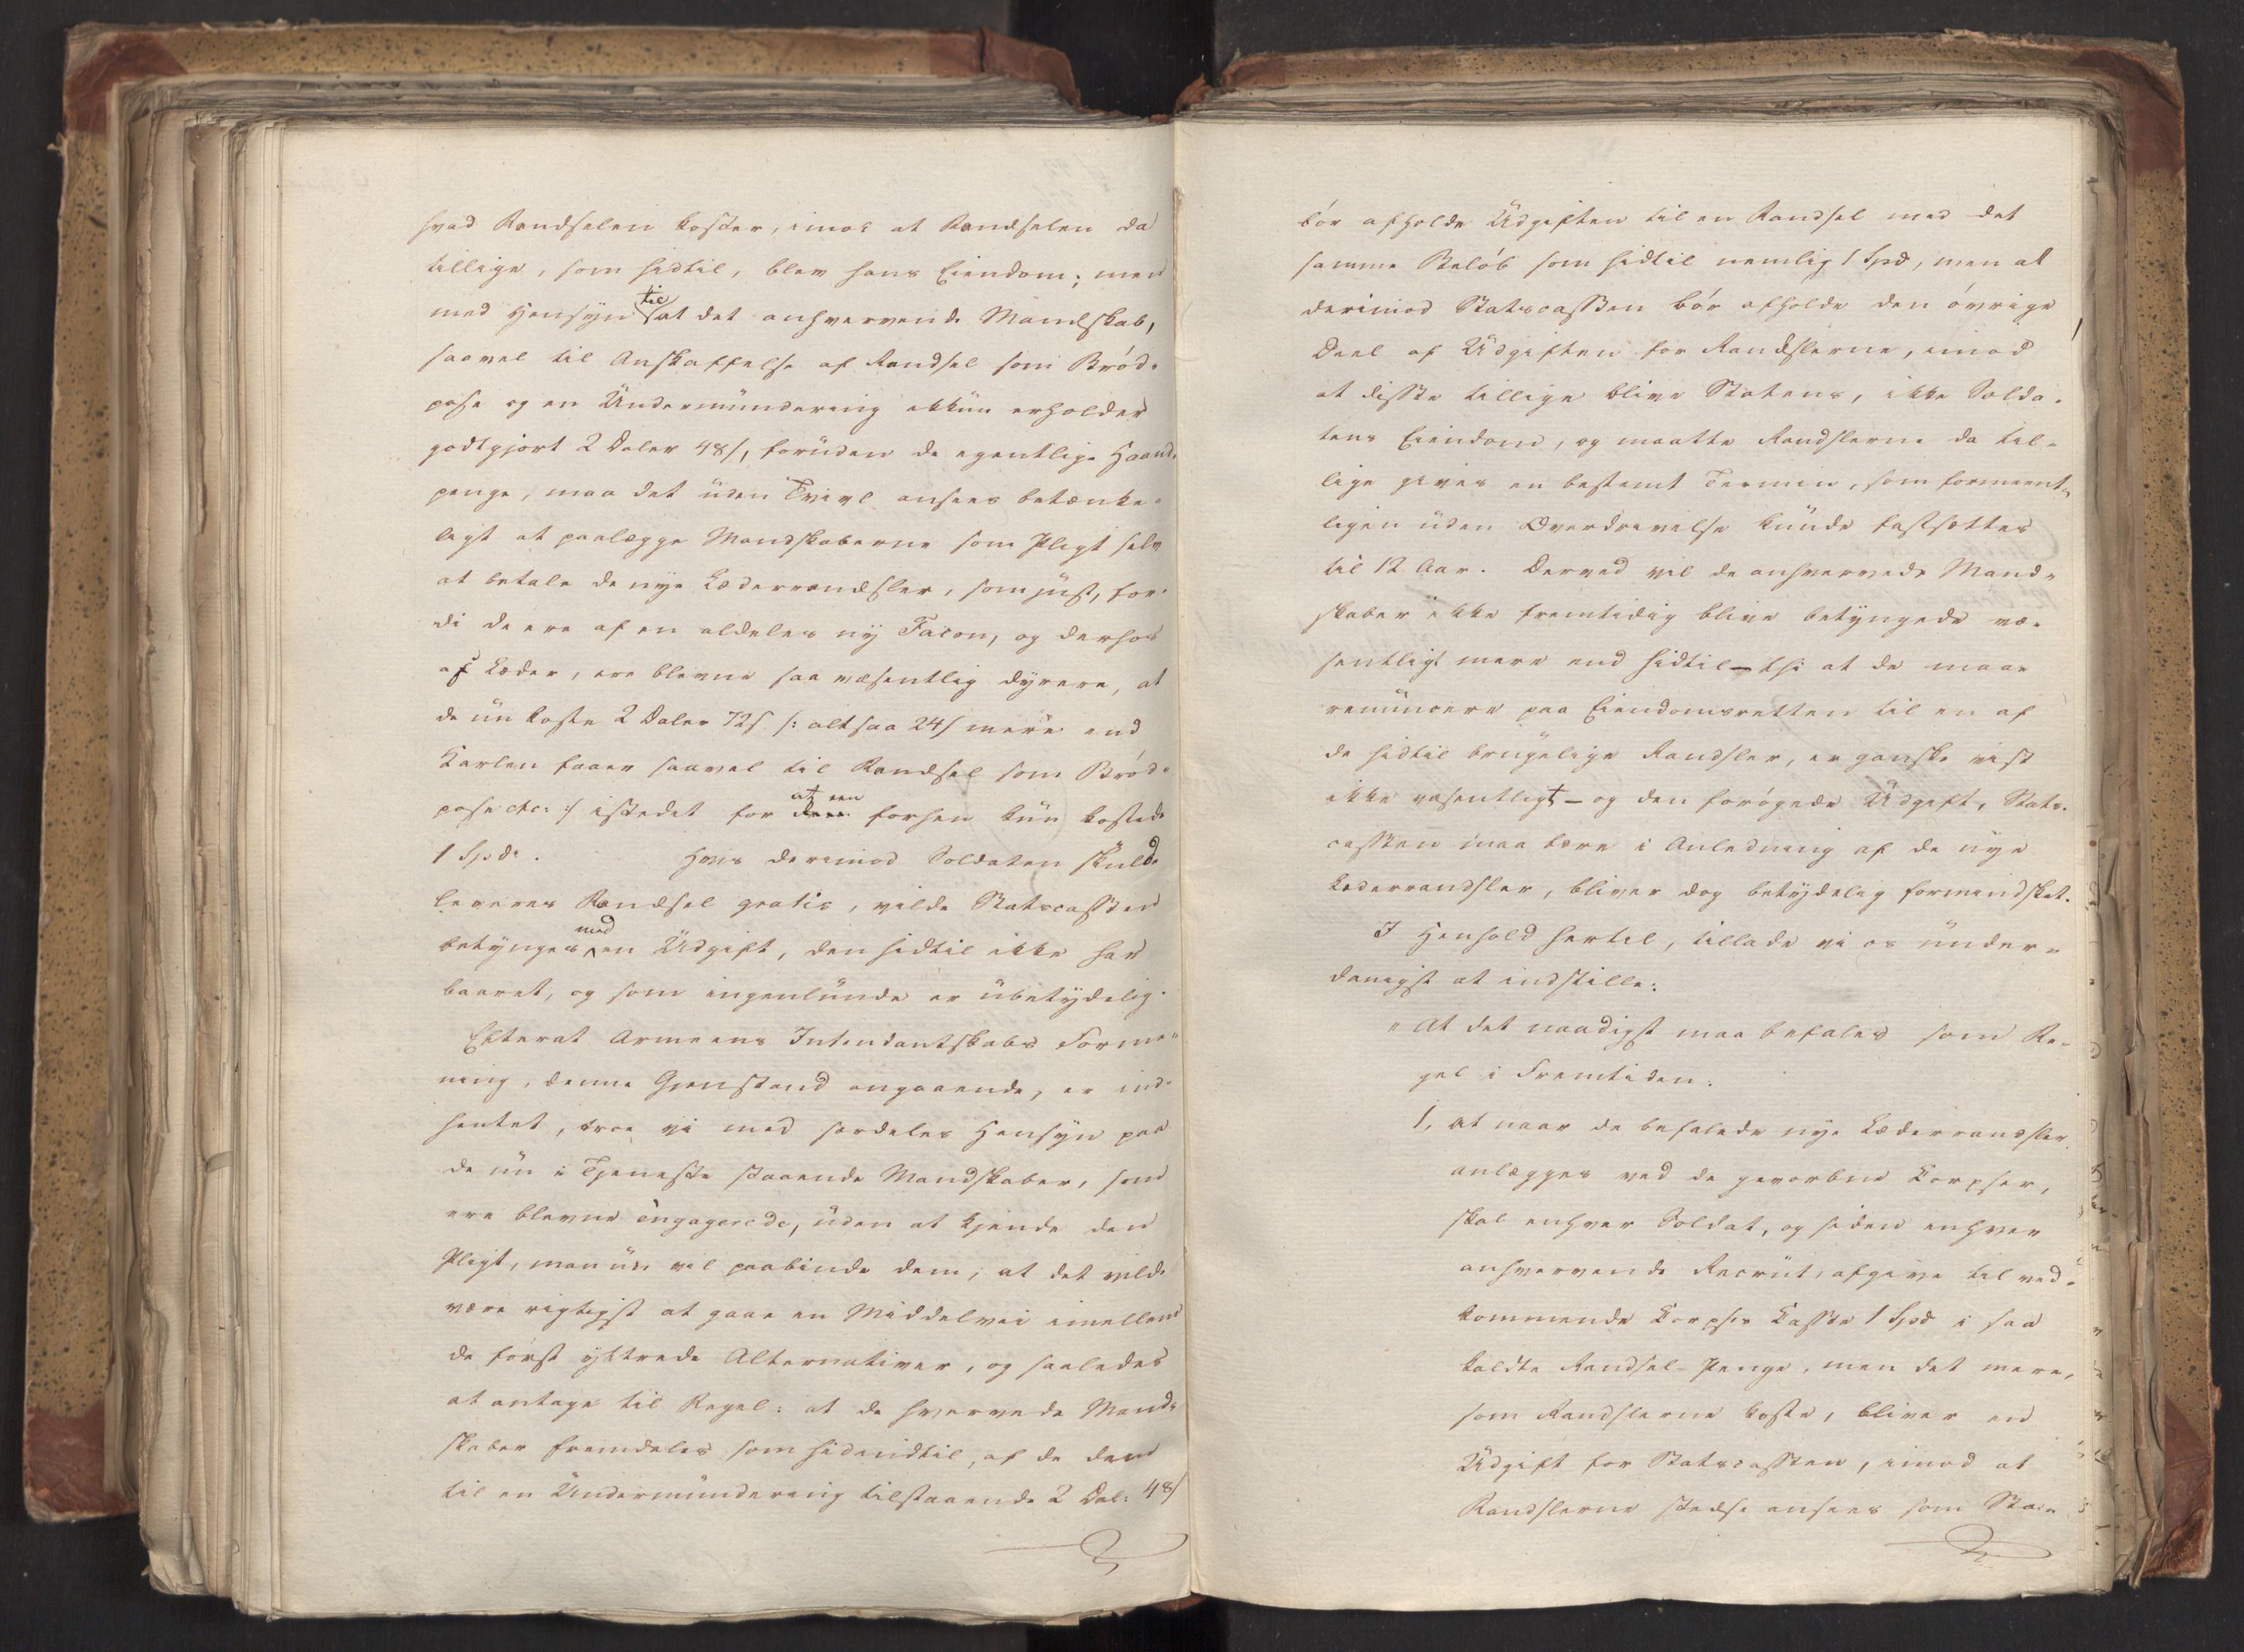 hvad Randselen koster, imod at Randselen da
tillige, som hidtil, blev hans Eiendom; men
med Hensyn til at det anhvervende Mandskab,
saavel til Anskaffelse af Randsel som Bröd-
pose og en Undermundering ikkun erholder
godtgjort 2 Daler 48/, foruden de egentlige Haand-
penge, maa det uden Tvivl ansees betænke-
ligt at paalægge Mandskaberne som Pligt selv
at betale de nye Læderrandsler, som just, for-
di de ere af en aldeles ny Facon, og derhos
af Læder, ere blevne saa væsentlig dyrere, at
de nu koste 2 Daler 72/ /: altsaa 24/ mere end
Karlen faaer saavel til Randsel som Bröd-
pose etc: :/ istedet for at een forhen kun kostede
1 Spd. Hvis derimod Soldaten skulde
leveres Randsel gratis, vilde Statscassen
betynges med en Udgift, den hidtil ikke har
baaret, og som ingenlunde er ubetydelig.
Efterat Armeens Intendantskabs Forme-
ning, denne Gjenstand angaaende, er ind-
hentet, troe vi med særdeles Hensyn paa
de nu i Tjeneste staaende Mandskaber, som
ere blevne engagerede, uden at kjende den
Pligt, man nu vil paabinde dem, at det vilde
være rigtigst at gaae en Middelvei imellem
de först yttrede Alternativer, og saaledes
at antage til Regel: at de hvervede Mand-
skaber fremdeles som hidindtil, af de dem
til en Undermundering tilstaaende 2 Dal: 48/
bör afholde Udgiften til en Randsel med det
samme Belöb som hidtil nemlig 1 Spd, men at
derimod Statscassen bör afholde den övrige
Deel af Udgiften for Randslerne, imod
at disse tillige blive Statens, ikke Solda-
tens Eiendom, og maatte Randslerne da til-
lige gives en bestemt Termin, som formeent-
ligen uden Overdrivelse kunde fastsættes
til 12 Aar. Derved vil de anhvervede Mand-
skaber ikke fremtidig blive betyngede væ-
sentligt mere end hidtil - thi at de maae
renuncere paa Eiendomsretten til en af
de hidtil brugelige Randsler, er ganske vist
ikke væsentligt - og den forögede Udgift, Stats-
cassen maa bære i Anledning af de nye
Læderrandsler, bliver dog betydelig formindsket.
I Henhold hertil, tillade vi os under-
danigst at indstille:
"At det naadigst maa befales som Re-
gel i Fremtiden:
1, at naar de befalede nye Læderrandsler
anlægges ved de gevorbne Corpser,
skal enhver Soldat, og siden enhver
anhvervende Recrut, afgive til ved-
kommende Corpses Casse 1 Spd i saa
kaldte Randsel-Penge, men det mere,
som Randslerne koste, bliver en
Udgift for Statscassen, imod at
Randslerne stedse ansees som Sta-